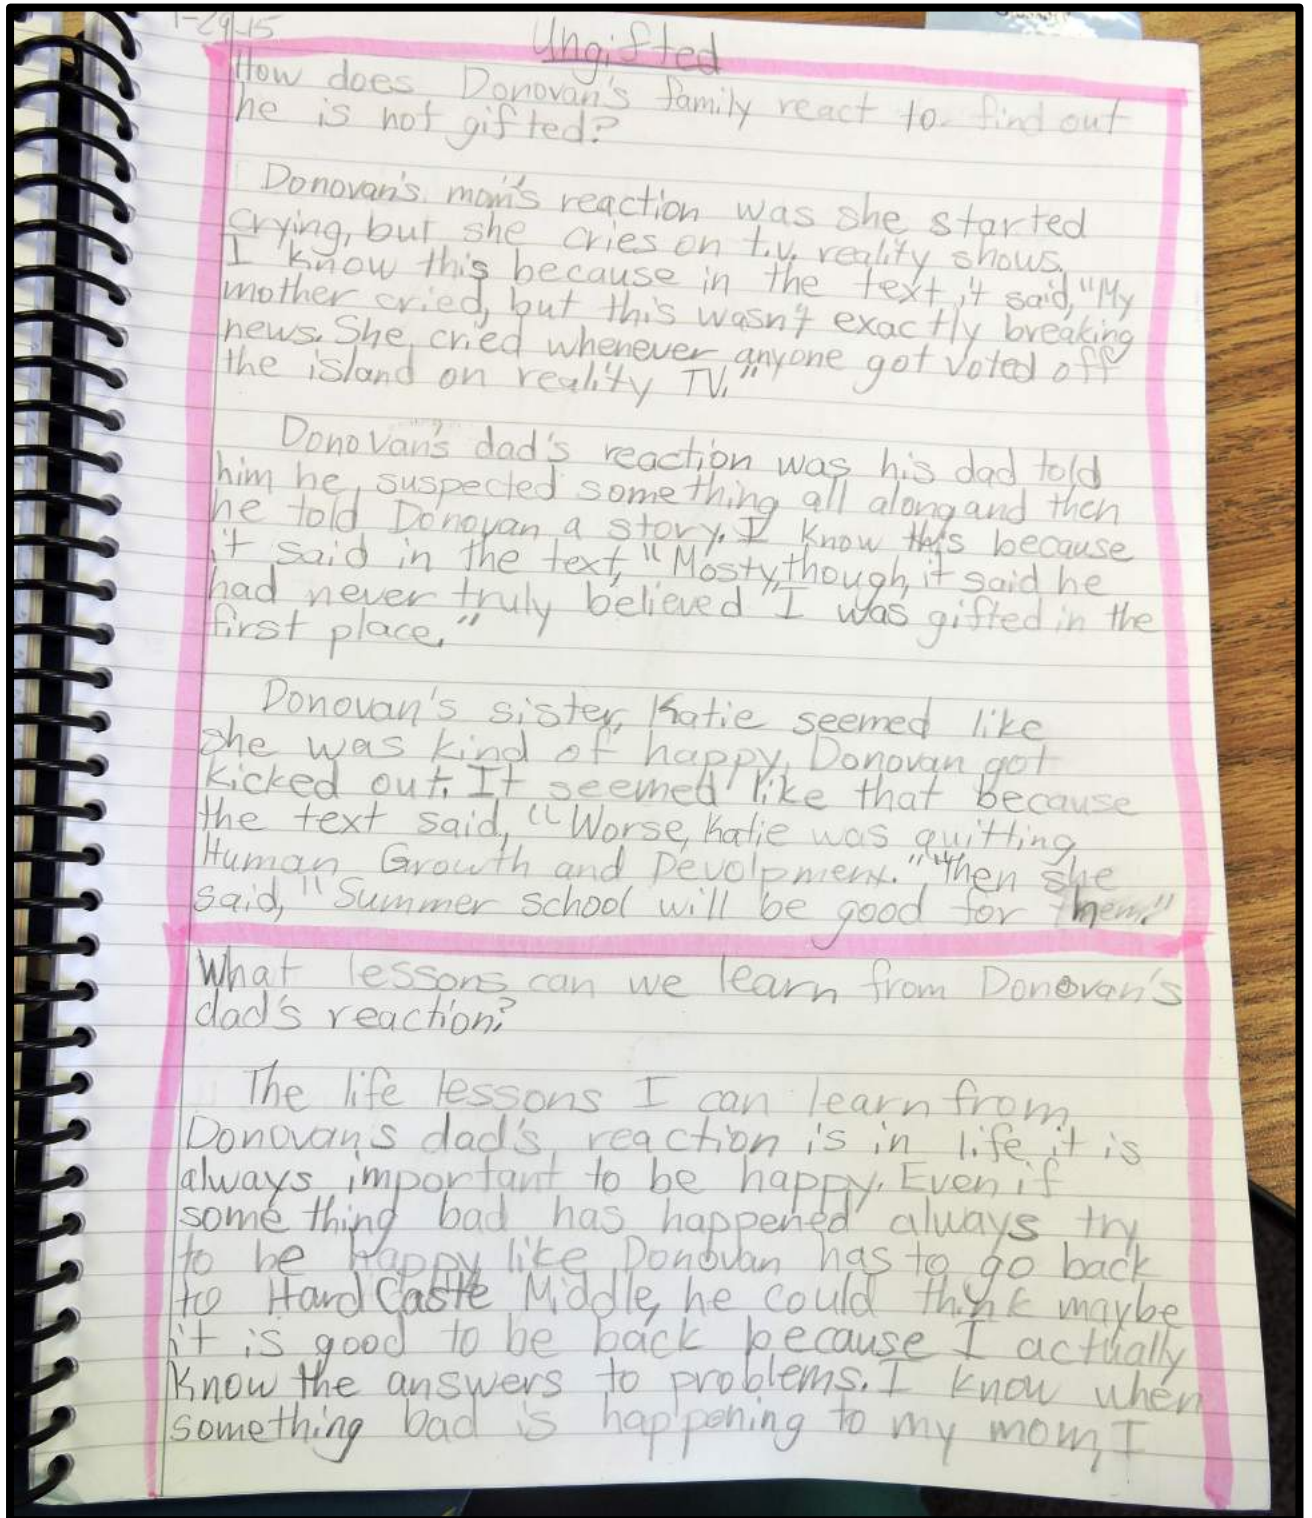 1-29-15
Ungifted
How does Donovan's family react to find out
he is not gifted?
Donovan's mom's reaction was she started
crying, but she cries on t.v. reality shows.
I know this because in the text it said, "My
mother cried, but this wasn't exactly breaking
news. She cried whenever anyone got voted off
the island on reality TV."
Donovan's dad's reaction was his dad told
him he suspected something all along and then
he told Donovan a story. I know this because
it said in the text, "Mosty, though, it said he
had never truly believed I was gifted in the
first place."
Donovan's sister, Katie seemed like
she was kind of happy, Donovan got
kicked out. It seemed like that because
the text said, "Worse, Katie was quitting
Human Growth and Devolpment." Then she
said, "Summer school will be good for them."
What lessons can we learn from Donovan's
dad's reaction?
The life lessons I can learn from
Donovan's dad's reaction is in life it is
always important to be happy. Even if
something bad has happened always try
to be happy like Donovan has to go back
to Hard Castle Middle, he could think maybe
it is good to be back because I actually
know the answers to problems. I know when
something bad is happening to my mom, I